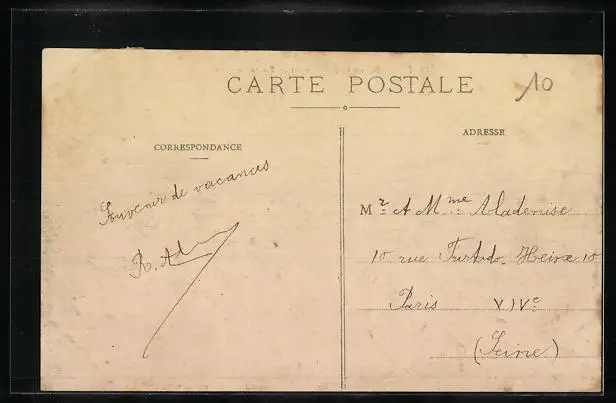 CARTE POSTALE
10
CORRESPONDANCE
ADRESSE
Souvenir de vacances
R. Ad
Mr et Mme Aladenise
10 rue Furtado-Heine 10
Paris XIVe
(Seine)